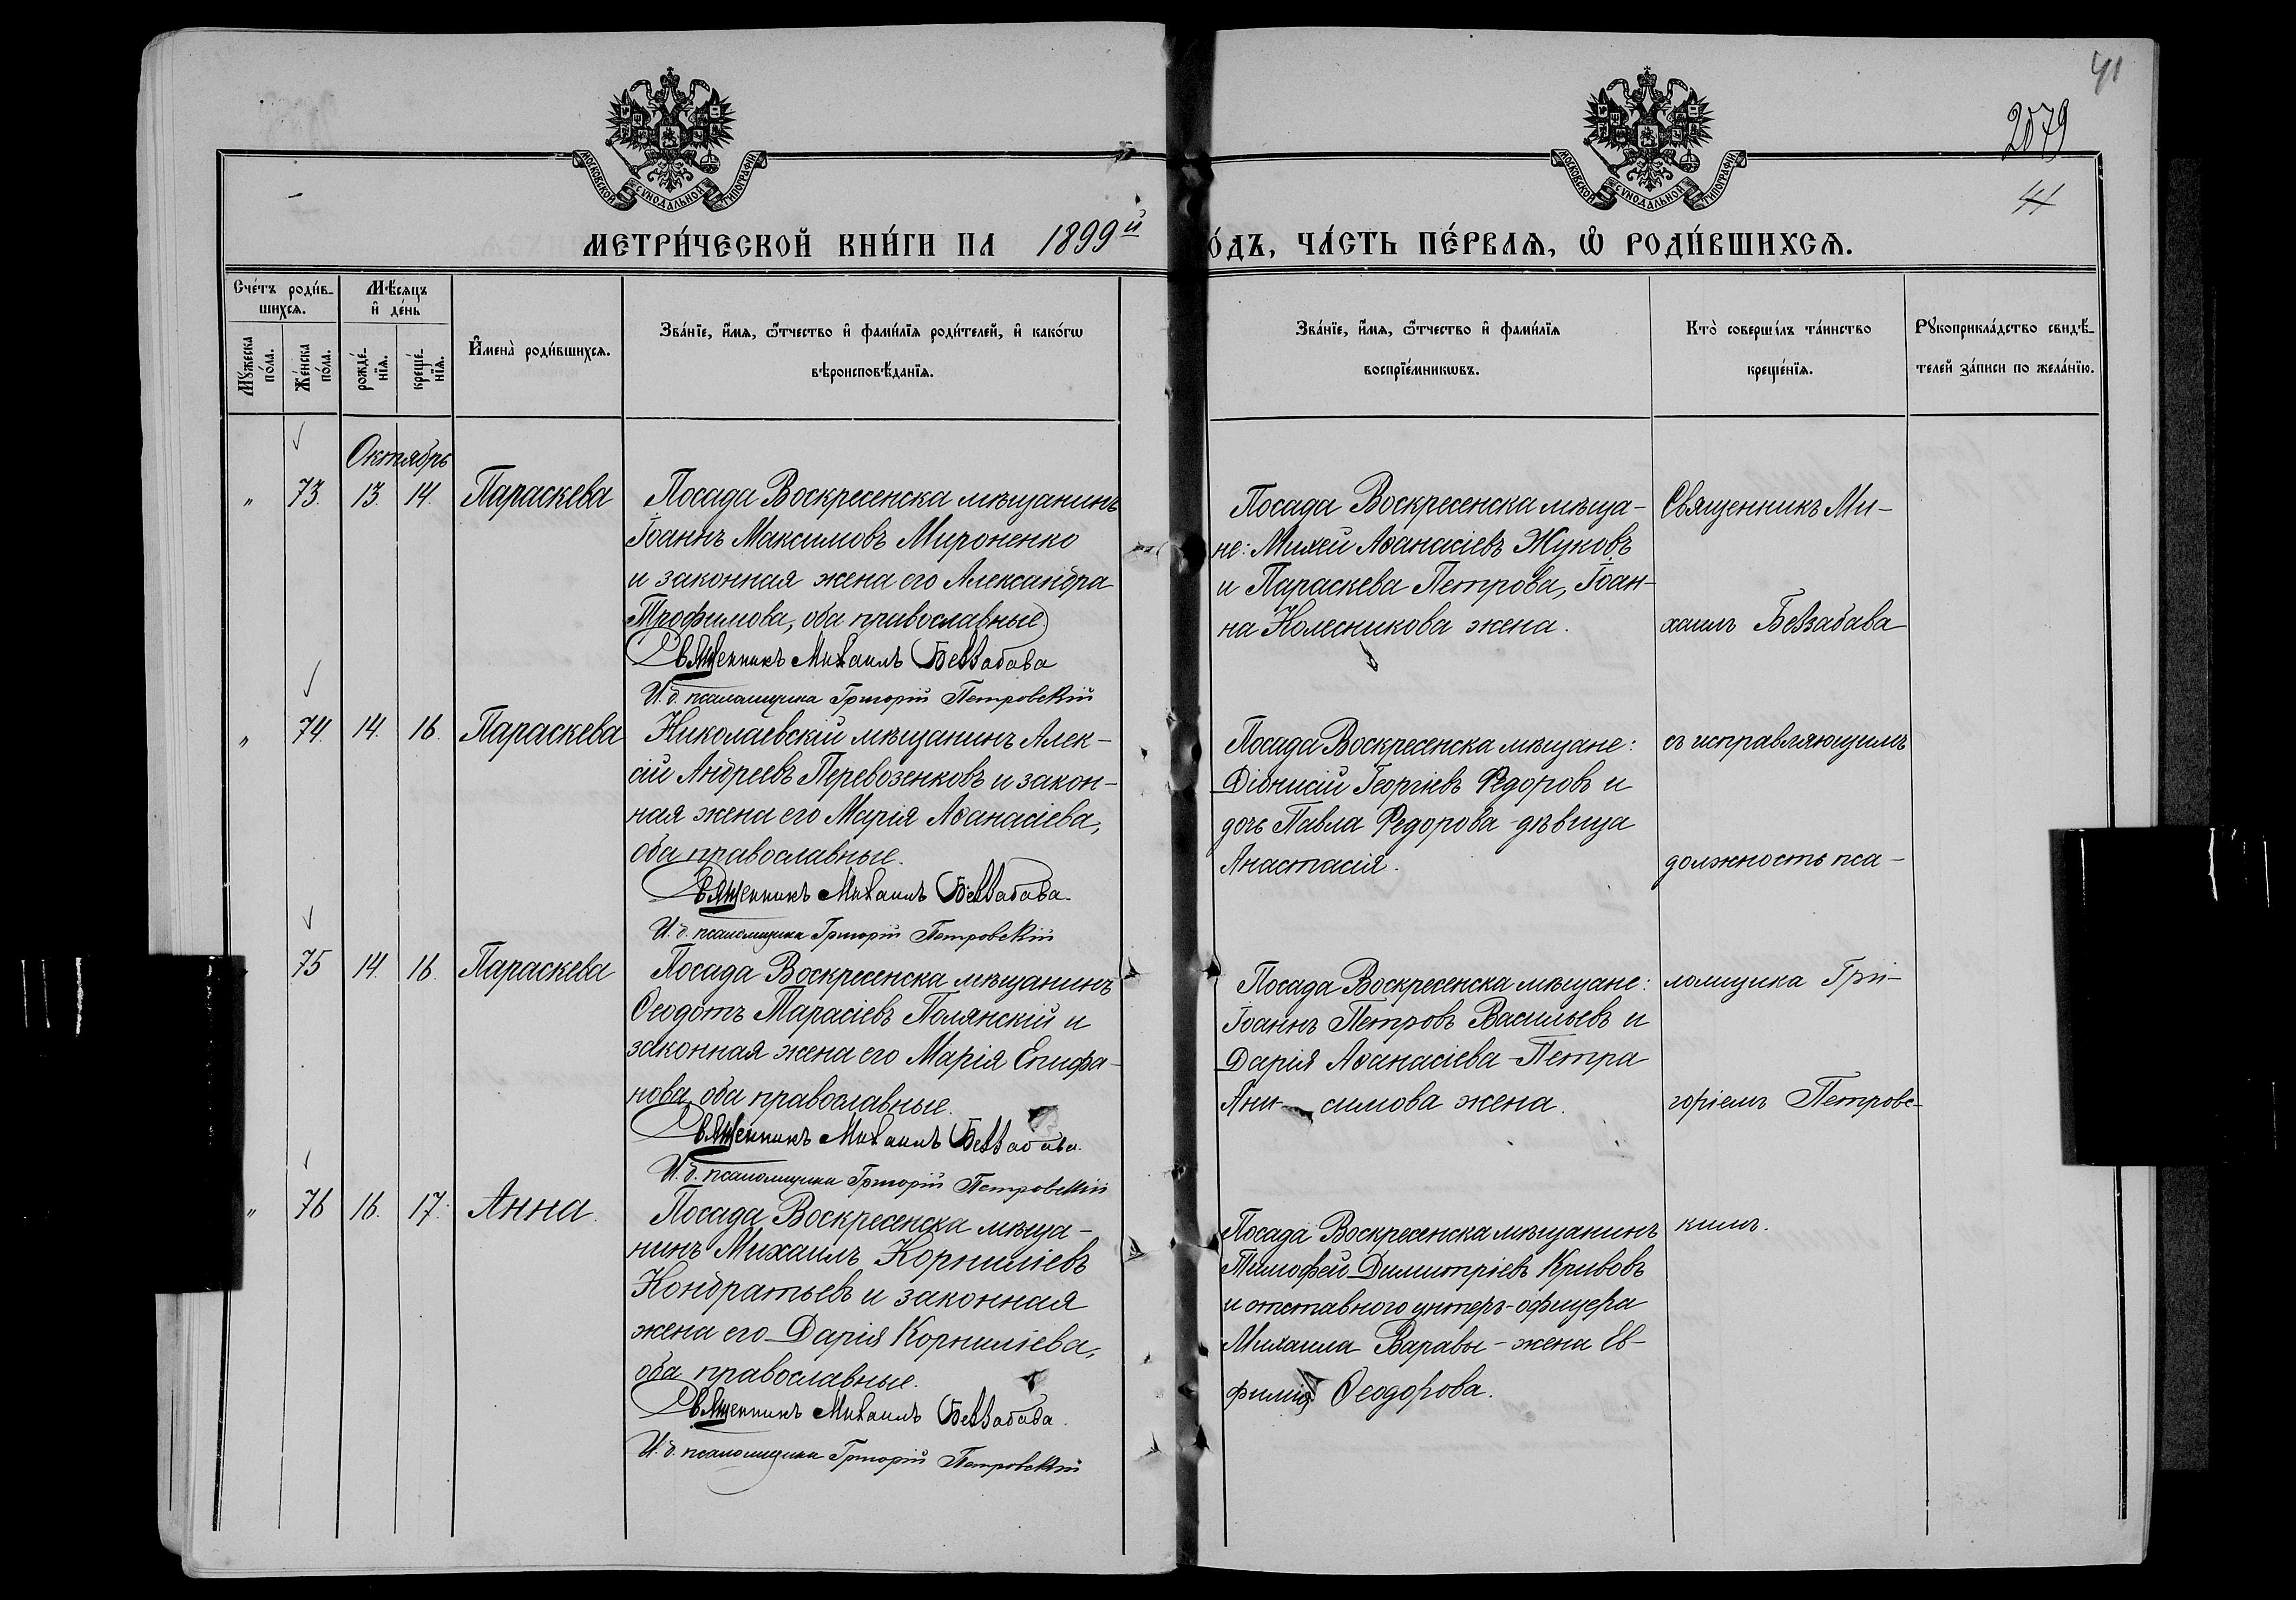 41
2079
41
МОСКОВСКОЙ СѴНОДАЛЬНОЙ ТИПОГРАФІИ
МОСКОВСКОЙ СѴНОДАЛЬНОЙ ТИПОГРАФІИ
МЕТРИ́ЧЕСКОЙ КНИ́ГИ НА 1899й
О́ДЪ, ЧА́СТЬ ПЕ́РВАѦ, Ѡ҆ РОДИ́ВШИХСѦ.
Сче́тъ роди́в-
шихсѧ.
Мꙋ́жеска по́ла.
Же́нска по́ла.
Мѣ́сѧцъ
и҆ де́нь
рожде́-нїѧ.
креще́-нїѧ.
И҆мена̀ роди́вшихсѧ.
Зва́нїе, и҆́мѧ, ѻ҆́тчество и҆ фами́лїѧ роди́телей, и҆ како́гѡ
вѣроисповѣ́данїѧ.
Зва́нїе, и҆́мѧ, ѻ҆́тчество и҆ фами́лїѧ
воспрїе́мникѡвъ.
Кто̀ соверши́лъ та́инство
креще́нїѧ.
Рꙋкоприкла́дство свидѣ́-
телей за́писи по жела́нїю.
Октябрь
" 73. 13. 14. Параскева
Посада Воскресенска мѣщанинъ
Іоаннъ Максимовъ Мироненко
и законная жена его Александра
Трофимова, оба православные.
Священникъ Михаилъ Беззабава
И. д. псаломщика Григорій Петровскій
Посада Воскресенска мѣща-
не: Михей Аѳанасіевъ Жуковъ
и Параскева Петрова, Іоан-
на Колесникова жена.
Священникъ Ми-
хаилъ Беззабава
" 74. 14. 16. Параскева
Николаевскій мѣщанинъ Алек-
сій Андреевъ Перевозенковъ и закон-
ная жена его Марія Аѳанасіева,
оба православные.
Священникъ Михаилъ Беззабава.
И. д. псаломщика Григорій Петровскій
Посада Воскресенска мѣщане:
Діонисій Георгіевъ Федоровъ и
дочь Павла Федорова - дѣвица
Анастасія.
съ исправляющимъ
должность пса-
75 14. 16. Параскева
Посада Воскресенска мѣщанинъ
Ѳеодотъ Тарасіевъ Полянскій и
законная жена его Марія Епифа-
нова, оба православные.
Священникъ Михаилъ Беззабава.
И. д. псаломщика Григорій Петровскій
Посада Воскресенска мѣщане:
Іоаннъ Петровъ Васильевъ и
Дарія Аѳанасіева - Петра
Ани- симова жена.
ломщика Гри-
горіемъ Петровс-
" 76 16. 17. Анна.
Посада Воскресенска мѣща-
нинъ Михаилъ Корниліевъ
Кондратьевъ и законная
жена его Дарія Корниліева,
оба православные.
Священникъ Михаилъ Беззабава.
И. д. псаломщика Григорій Петровскій
Посада Воскресенска мѣщанинъ
Тимофей Димитріевъ Кривовъ
и отставного унтеръ-офицера
Михаила Варавы - жена Ев-
фимія Ѳеодорова.
кимъ.